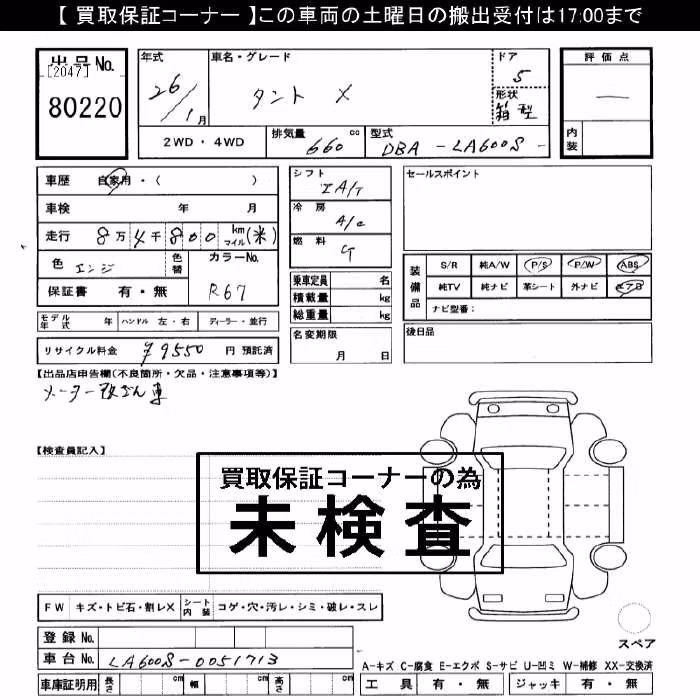 【 買取保証コーナー 】この車両の土曜日の搬出受付は17:00まで
出品No.
[2047]
80220
年式
26/1月
車名・グレード
タント X
ドア
5
形状
箱型
評価点
―
内装
2WD・4WD
排気量 660 cc
型式 DBA-LA600S-
車歴 自家用・( )
車検 年 月
走行 8万4千800 km マイル(米)
色 エンジ
色替
カラーNo. R67
保証書 有・無
モデル年式 年 ハンドル 左・右 ディーラー・並行
リサイクル料金 ¥9550 円 預託済
シフト IA/T
冷房 A/C
燃料 G
乗車定員 名
積載量 kg
総重量 kg
名変期限
月 日
セールスポイント
装備品
S/R 純A/W P/S P/W ABS
純TV 純ナビ 革シート 外ナビ エアB
ナビ型番:
後日品
【出品店申告欄(不良箇所・欠品・注意事項等)】
メーター改ざん車
【検査員記入】
買取保証コーナーの為
未検査
FW キズ・トビ石・割レX シート内装 コゲ・穴・汚レ・シミ・破レ・スレ
登録No.
車台No. LA600S-0051713
車庫証明用 長さ cm 幅 cm 高さ cm
スペア
A-キズ C-腐食 E-エクボ S-サビ U-凹ミ W-補修 XX-交換済
工具 有・無 ジャッキ 有・無